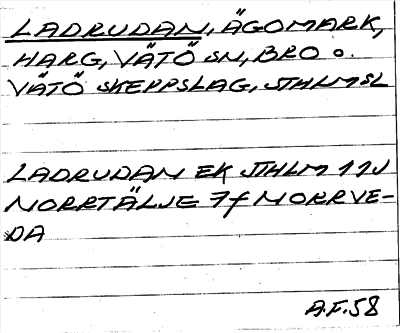 LADRUDAN, ÄGOMARK,
HARG, VÄTÖ SN, BRO o.
VÄTÖ SKEPPSLAG, STHLMSL
LADRUDAN EK STHLM 11J
NORRTÄLJE 7f NORRVE-
DA
A.F.58